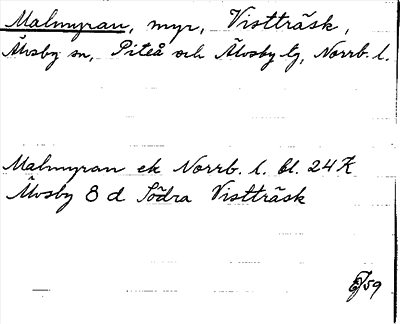 Malmyran, myr, Vistträsk,
Älvsby sn, Piteå och Älvsby tg, Norrb. l.
Malmyran ek Norrb. l. bl. 24 K
Älvsby 8 d Södra Vistträsk
59